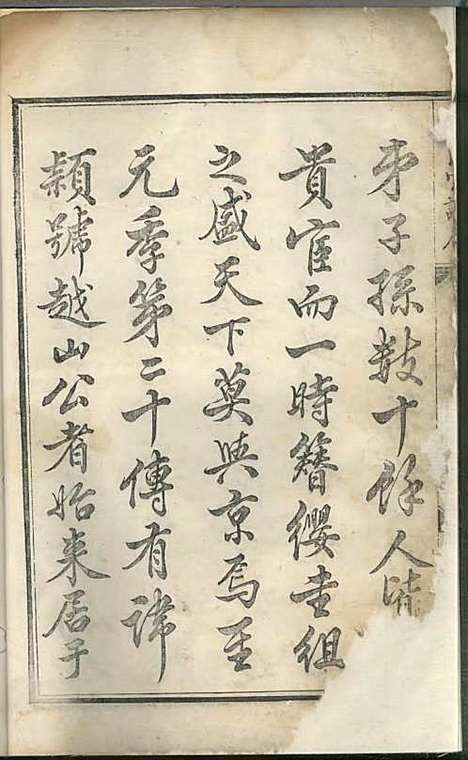 弟子孫數十餘人皆
貴宦而一時簪纓圭組
之盛天下莫與京焉至
元季第二十傳有諱
頴號越山公者始来居于